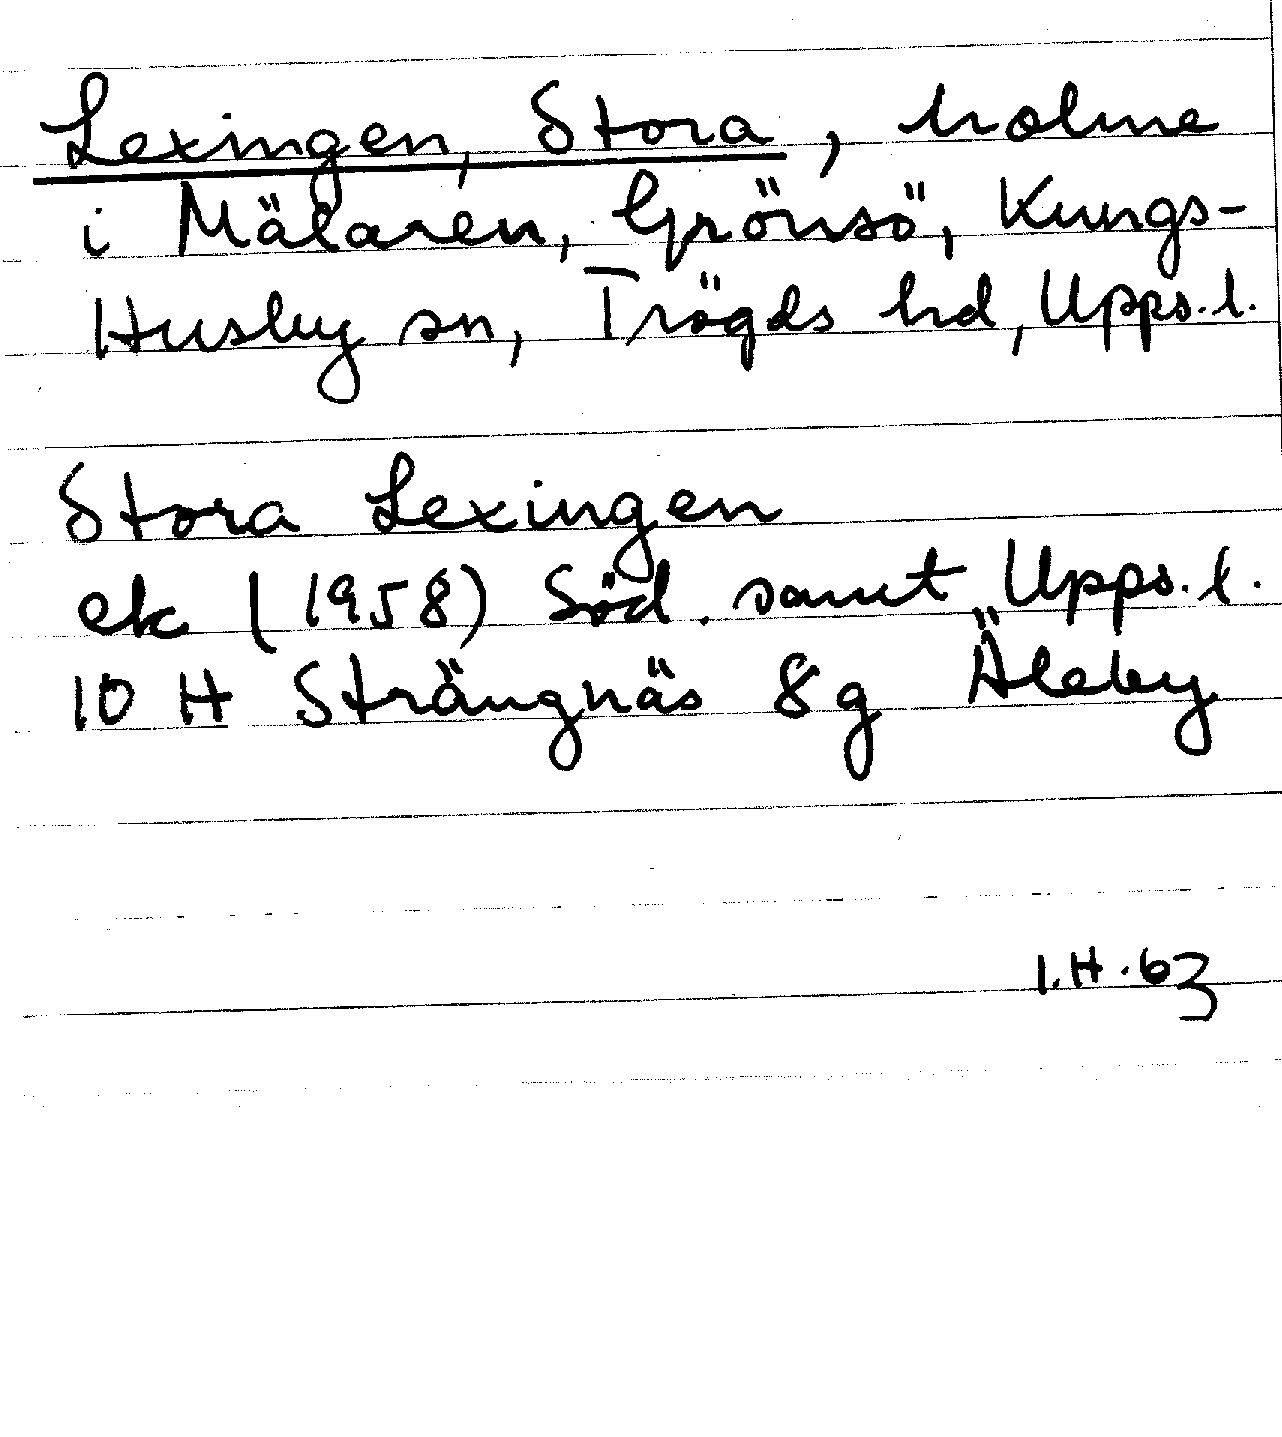 Lexingen, Stora, holme
i Mälaren, Grönsö, Kungs-
Husby sn, Trögds hd, Upps.l.
Stora Lexingen
ek (1958) Söd. samt Upps.l.
10 H Strängnäs 8g Äleby
I.H.63